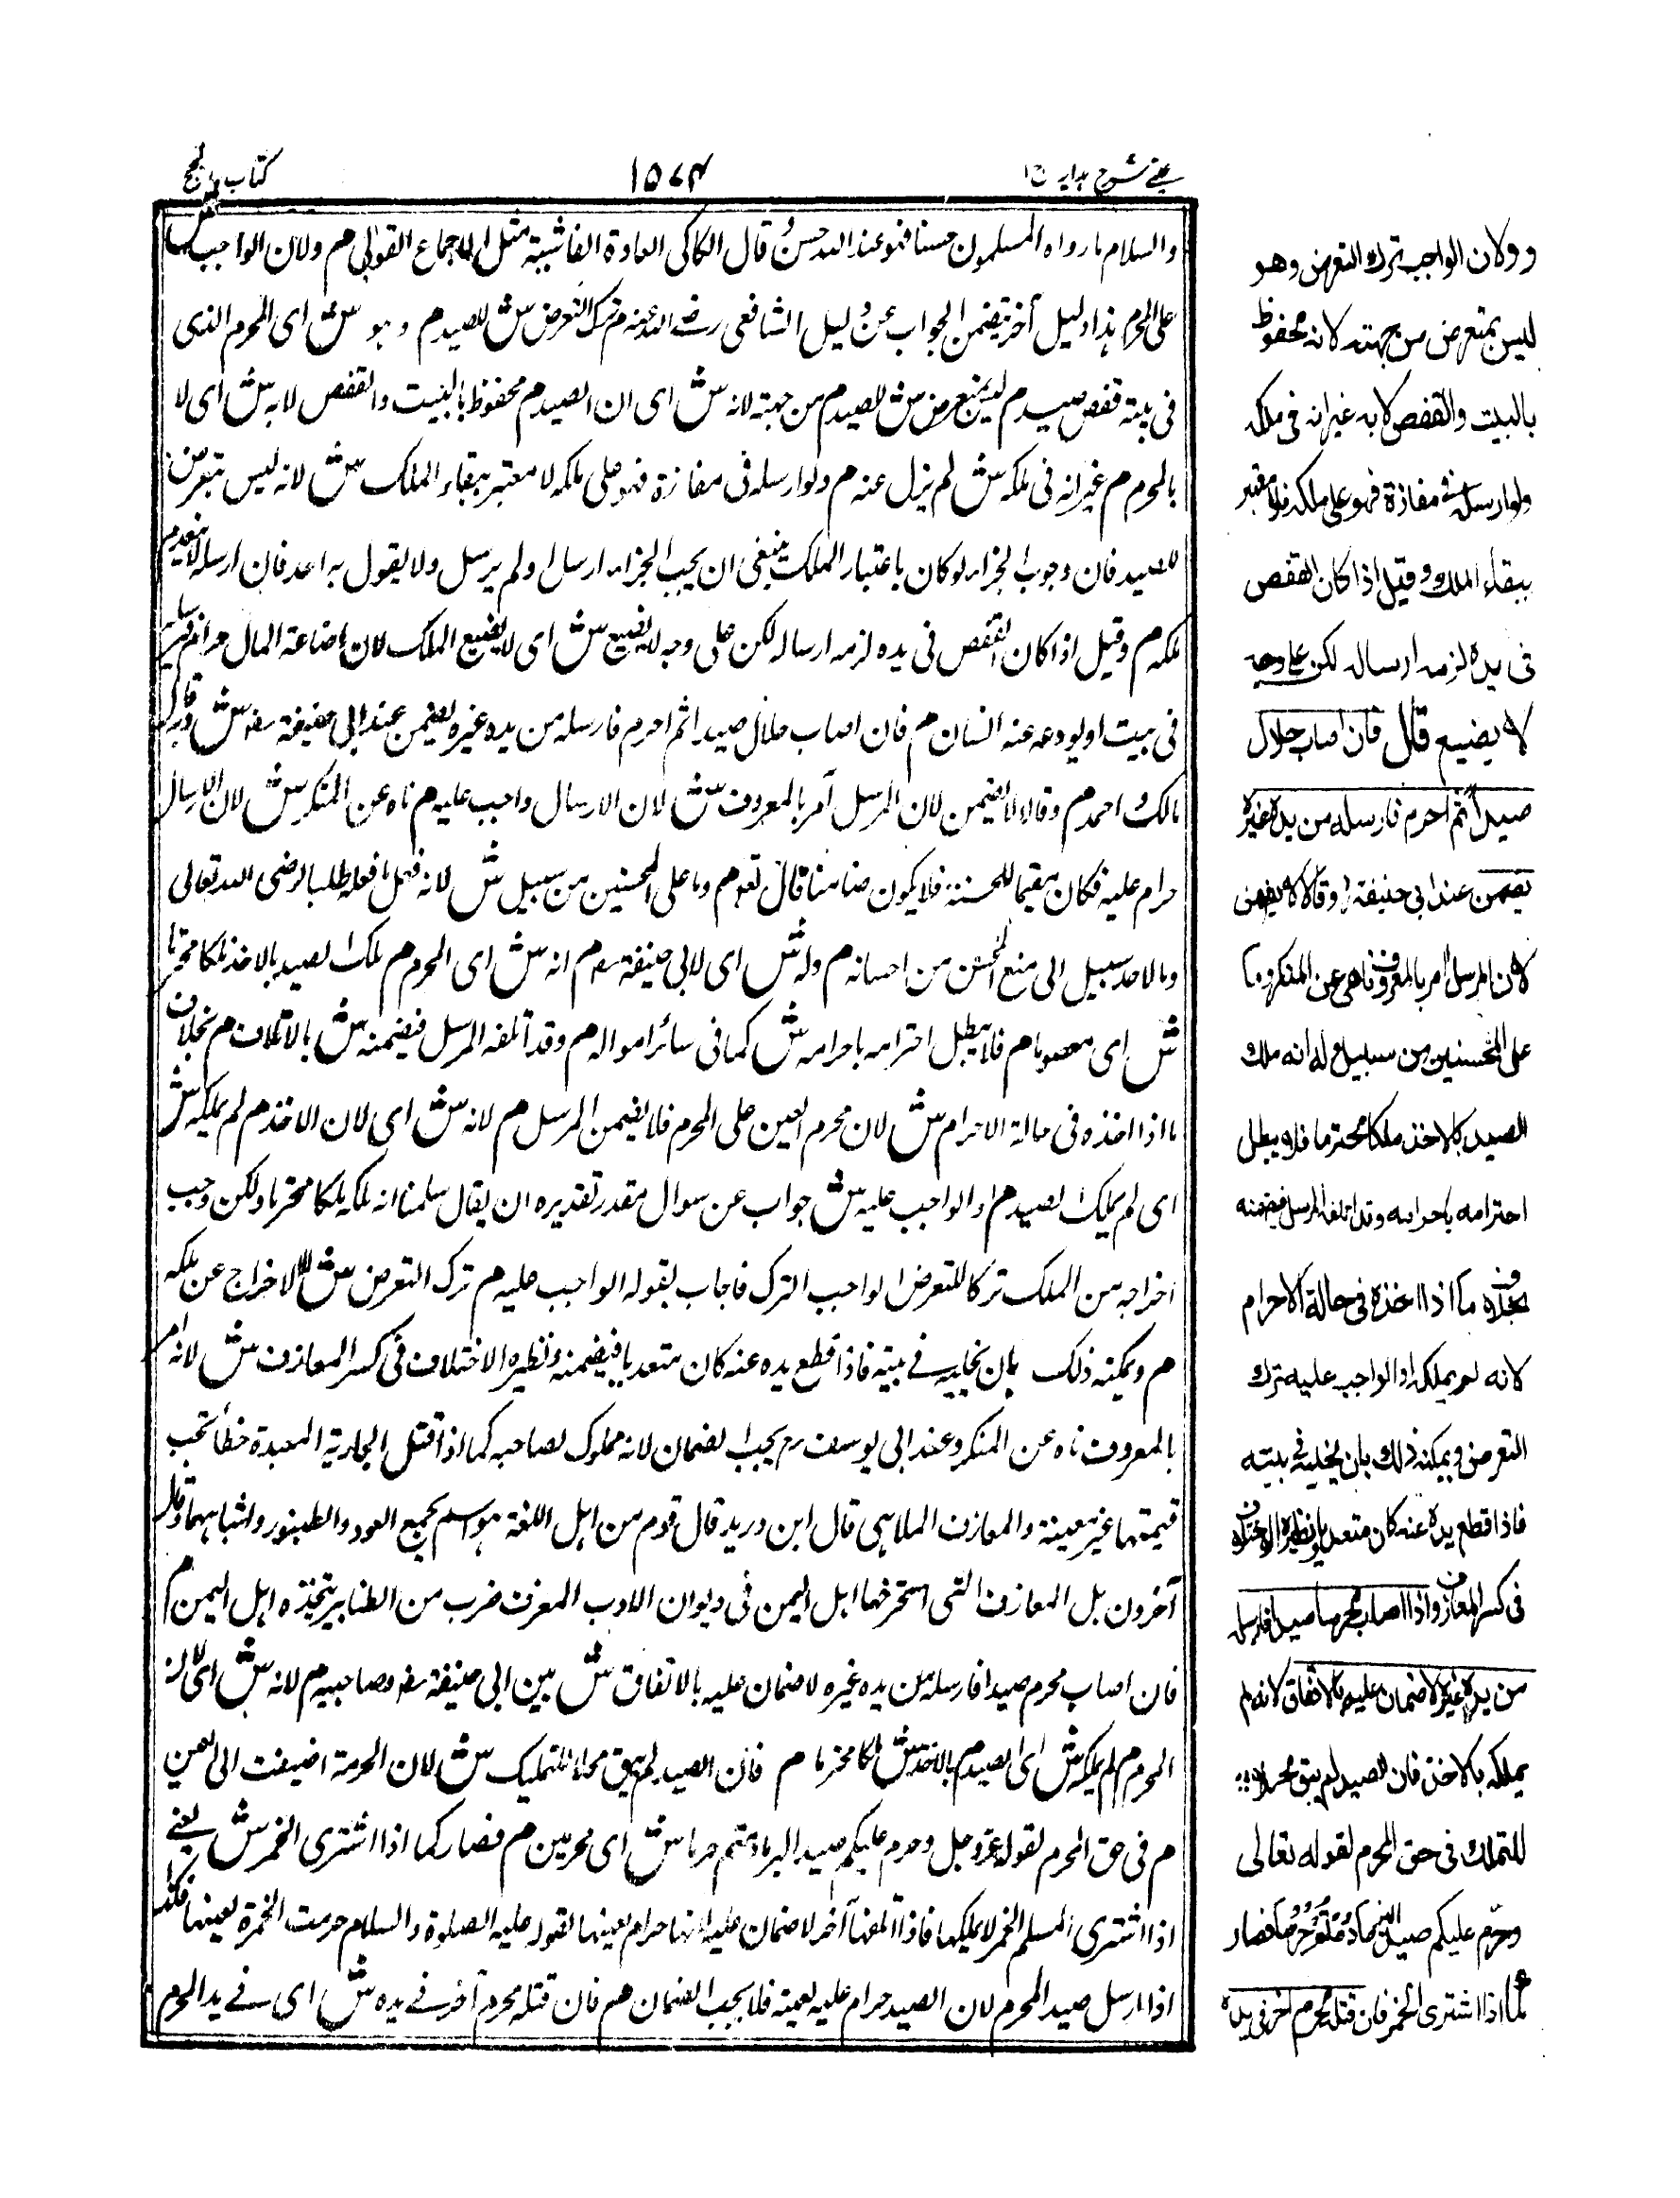 عینے شرح ہدایہ ج ا
١٥٧٤
كتاب الحج
والسلام ما رواه المسلمون حسنا فهو عند الله حسن و قال الكاكى العادة الفاشية مثل الاجماع القولى م ولان الواجب ش
على المحرم هذا دليل آخر يتضمن الجواب عن دليل الشافعى رضے الله عنه م ترك التعرض ش للصيد م وهو ش اى المحرم الذى
فى بيته قفص صيد م ليس بمتعرض ش للصيد م من جهته لانه ش اى ان الصيد م محفوظ بالبيت والقفص لا به ش اى لا
بالمحرم م غير انه فى ملكه ش لم يزل عنه م ولو ارسله فى مفازة فهو على ملكه لا معتبر ببقاء الملك ش لانه ليس بتعرض
للصيد فان وجوب الجزاء لو كان باعتبار الملك ينبغى ان يجب الجزاء ارسل او لم يرسل ولا يقول به احد فان ارسله لا ينعدم
ملكه م وقيل اذا كان القفص فى يده لزمه ارساله لكن على وجه لا يضيع ش اى لا يضيع الملك لان اضاعة المال حرام فيرسله
فى بيت او يودعه عند انسان م فان اصاب حلال صيدا ثم احرم فارسله من يده غيره يضمن عند ابى حنيفة رض ش وبه قال
مالك و احمد م وقالا لا يضمن لان المرسل آمر بالمعروف ش لان الارسال واجب عليه م ناه عن المنكر ش لان الارسال
حرام عليه فكان مقيما للحسنة فلا يكون ضامنا قال تع م وما على المحسنين من سبيل ش لانه فعل ما فعله طلبا لرضى الله تعالى
وما لاحد سبيل الى منع المحسن من احسانه م وله ش اى لابى حنيفة رض م انه ش اى المحرم م ملك الصيد بالاخذ ملكا محترما
ش اى معصوما م فلا يبطل احترامه باحرامه ش كما فى سائر امواله م وقد اتلفه المرسل فيضمنه ش بالاتلاف م بخلاف
ما اذا اخذه فى حالة الاحرام ش لان محرم العين على المحرم فلا يضمن المرسل م لانه ش اى لان الاخذ م لم يملكه ش
اى لم يملك الصيد م والواجب عليه ش جواب عن سوال مقدر تقديره ان يقال سلمنا انه ملكه ملكا محترما ولكن وجب
اخراجه من الملك تركا للتعرض الواجب الترك فاجاب بقوله الواجب عليه م ترك التعرض ش لا الاخراج عن ملكه
م ويمكنه ذلك بان يخليه فے بيته فاذا قطع يده عنه كان متعديا فيضمنه ونظيره الاختلاف فى كسر المعازف ش لانه امر
بالمعروف ناه عن المنكر وعند ابى يوسف رح يجب الضمان لانه مملوك لصاحبه كما اذا قتل الجارية المعبدة خطأ تجب
قيمتها غير معينة والمعازف الملاهى قال ابن دريد قال قوم من اهل اللغة هو اسم يجمع العود والطنبور واشباههما وقال
آخرون بل المعازف التى استخرجها اهل اليمن فى ديوان الادب المعزف ضرب من الطنابير يتخذه اهل اليمن م
فان اصاب محرم صيدا فارسله من يده غيره لا ضمان عليه بالاتفاق ش بين ابى حنيفة رض وصاحبيه م لانه ش اى لان
المحرم م لم يملكه ش اى الصيد م بالاخذ ش ملكا محترما م فان الصيد لم يبق محلا للتمليك ش لان الحرمة اضيفت الى العين
م فى حق المحرم لقوله عز وجل وحرم عليكم صيد البر ما دمتم حرما ش اى محرمين م فصار كما اذا اشترى الخمر ش يعنے
اذا اشترى المسلم الخمر لا يملكها فاذا اتلفها آخر لا ضمان عليه لانها حرام لعينها لقوله عليه الصلوة والسلام حرمت الخمرة لعينها فكذا
اذا ارسل صيد المحرم لان الصيد حرام عليه لعينه فلا يجب الضمان م فان قتله محرم آخر فے يده ش اى فے يد المحرم
و ولان الواجب ترك التعرض وهو
ليس بمتعرض من جهته لانه محفوظ
بالبيت والقفص لا به غير انه فى ملكه
ولو ارسله فى مفازة فهو على ملكه فلا معتبر
ببقاء الملك وقيل اذا كان القفص
فى يده لزمه ارساله لكن على وجه
لا يضيع قال فان اصاب حلال
صيدا ثم احرم فارسله من يده غيره
يضمن عند ابى حنيفة رح وقالا لا يضمن
لان المرسل آمر بالمعروف ناهى عن المنكر وما
على المحسنين من سبيل وله انه ملك
الصيد بالاخذ ملكا محترما فلا يبطل
احترامه باحرامه وقد اتلفه المرسل فيضمنه
بخلاف ما اذا اخذه فى حالة الاحرام
لانه لم يملكه والواجب عليه ترك
التعرض ويمكنه ذلك بان يخليه فے بيته
فاذا قطع يده عنه كان متعديا ونظيره الاختلاف
فى كسر المعازف واذا اصاب محرم صيدا فارسله
من يده غيره لا ضمان عليه بالاتفاق لانه لم
يملكه بالاخذ فان الصيد لم يبق محلا
للتملك فى حق المحرم لقوله تعالى
وحرم عليكم صيد البر ما دمتم حرما فصار
كما اذا اشترى الخمر فان قتله محرم آخر فى يده